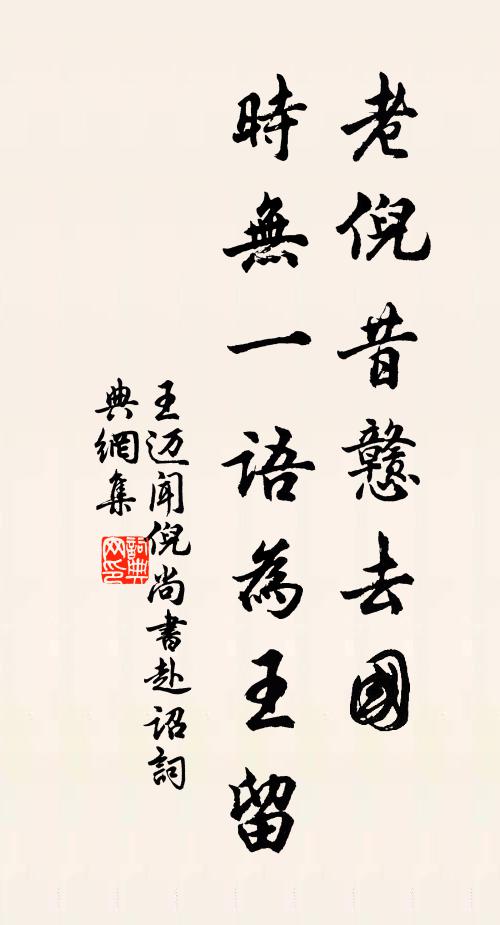 老倪昔戇去國
時無一語為王留
王迈聞倪尚書赴诏詞
典網集
詞典网印